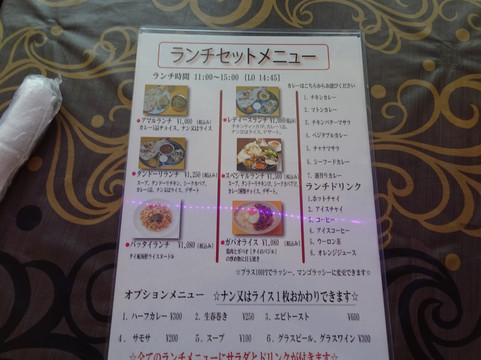 ランチセットメニュー
ランチ時間 11:00〜15:00 [LO 14:45]
カレーはこちらからお選びください
1. チキンカレー
2. マトンカレー
3. チキンバターマサラ
4. ベジタブルカレー
5. チャナマサラ
6. シーフードカレー
7. 週替りカレー
●アマルランチ ¥1,000 (税込み)
カレー1品チョイス、ナン又はライス
●レディースランチ (税込み)
チキンティッカ1P、カレー1品、
ナン又はライス、デザート、
●タンドーリランチ ¥1,250 (税込み)
スープ、タンドーリチキン、シークカバブ、
カレー1品、ナン又はライス、デザート
●スペシャルランチ ¥1,500 (税込み)
スープ、タンドーリチキン、シークカバブ、
カレー2種類チョイス、ナン又はライス、デザート
ランチドリンク
1. ホットチャイ
2. アイスチャイ
3. コーヒー
4. アイスコーヒー
5. ウーロン茶
6. オレンジジュース
●パッタイランチ ¥1,080 (税込み)
タイ風焼野ライスヌードル
●ガパオライス ¥1,080 (税込み)
鶏肉とガパオ(タイのバジル)
の炒め物に目玉焼き
☆プラス100円でラッシー、マンゴラッシーに変更できます☆
オプションメニュー ☆ナン又はライス1枚おかわりできます☆
1. ハーフカレー ¥300 2. 生春巻き ¥250 3. エビトースト ¥600
4. サモサ ¥200 5. スープ ¥100 6. グラスビール、グラスワイン ¥300
☆全てのランチメニューにサラダとドリンクが付きます☆